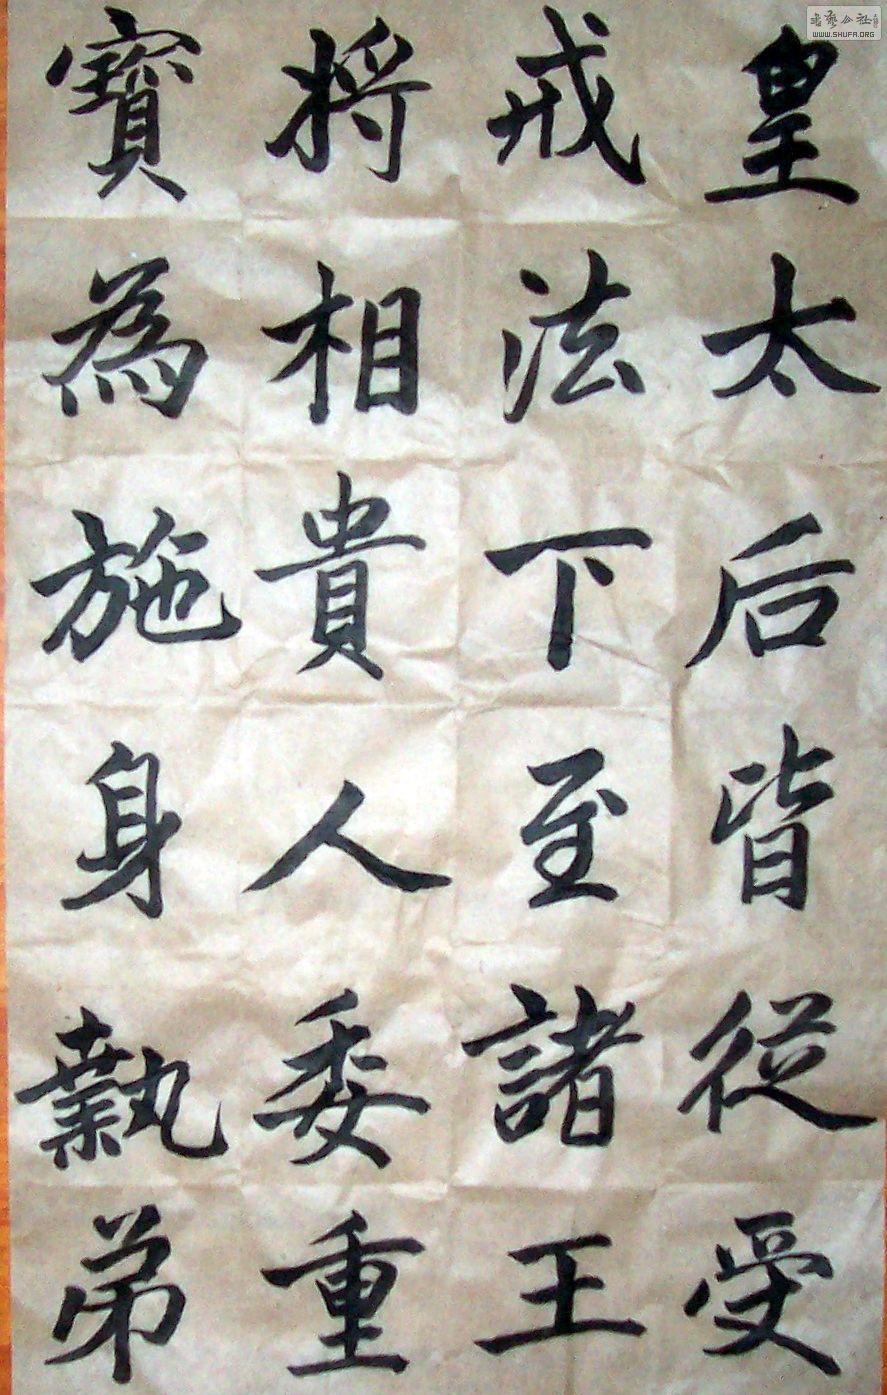 皇太后皆從受
戒法下至諸王
將相貴人委重
寶為施身執弟
書藝公社
WWW.SHUFA.ORG